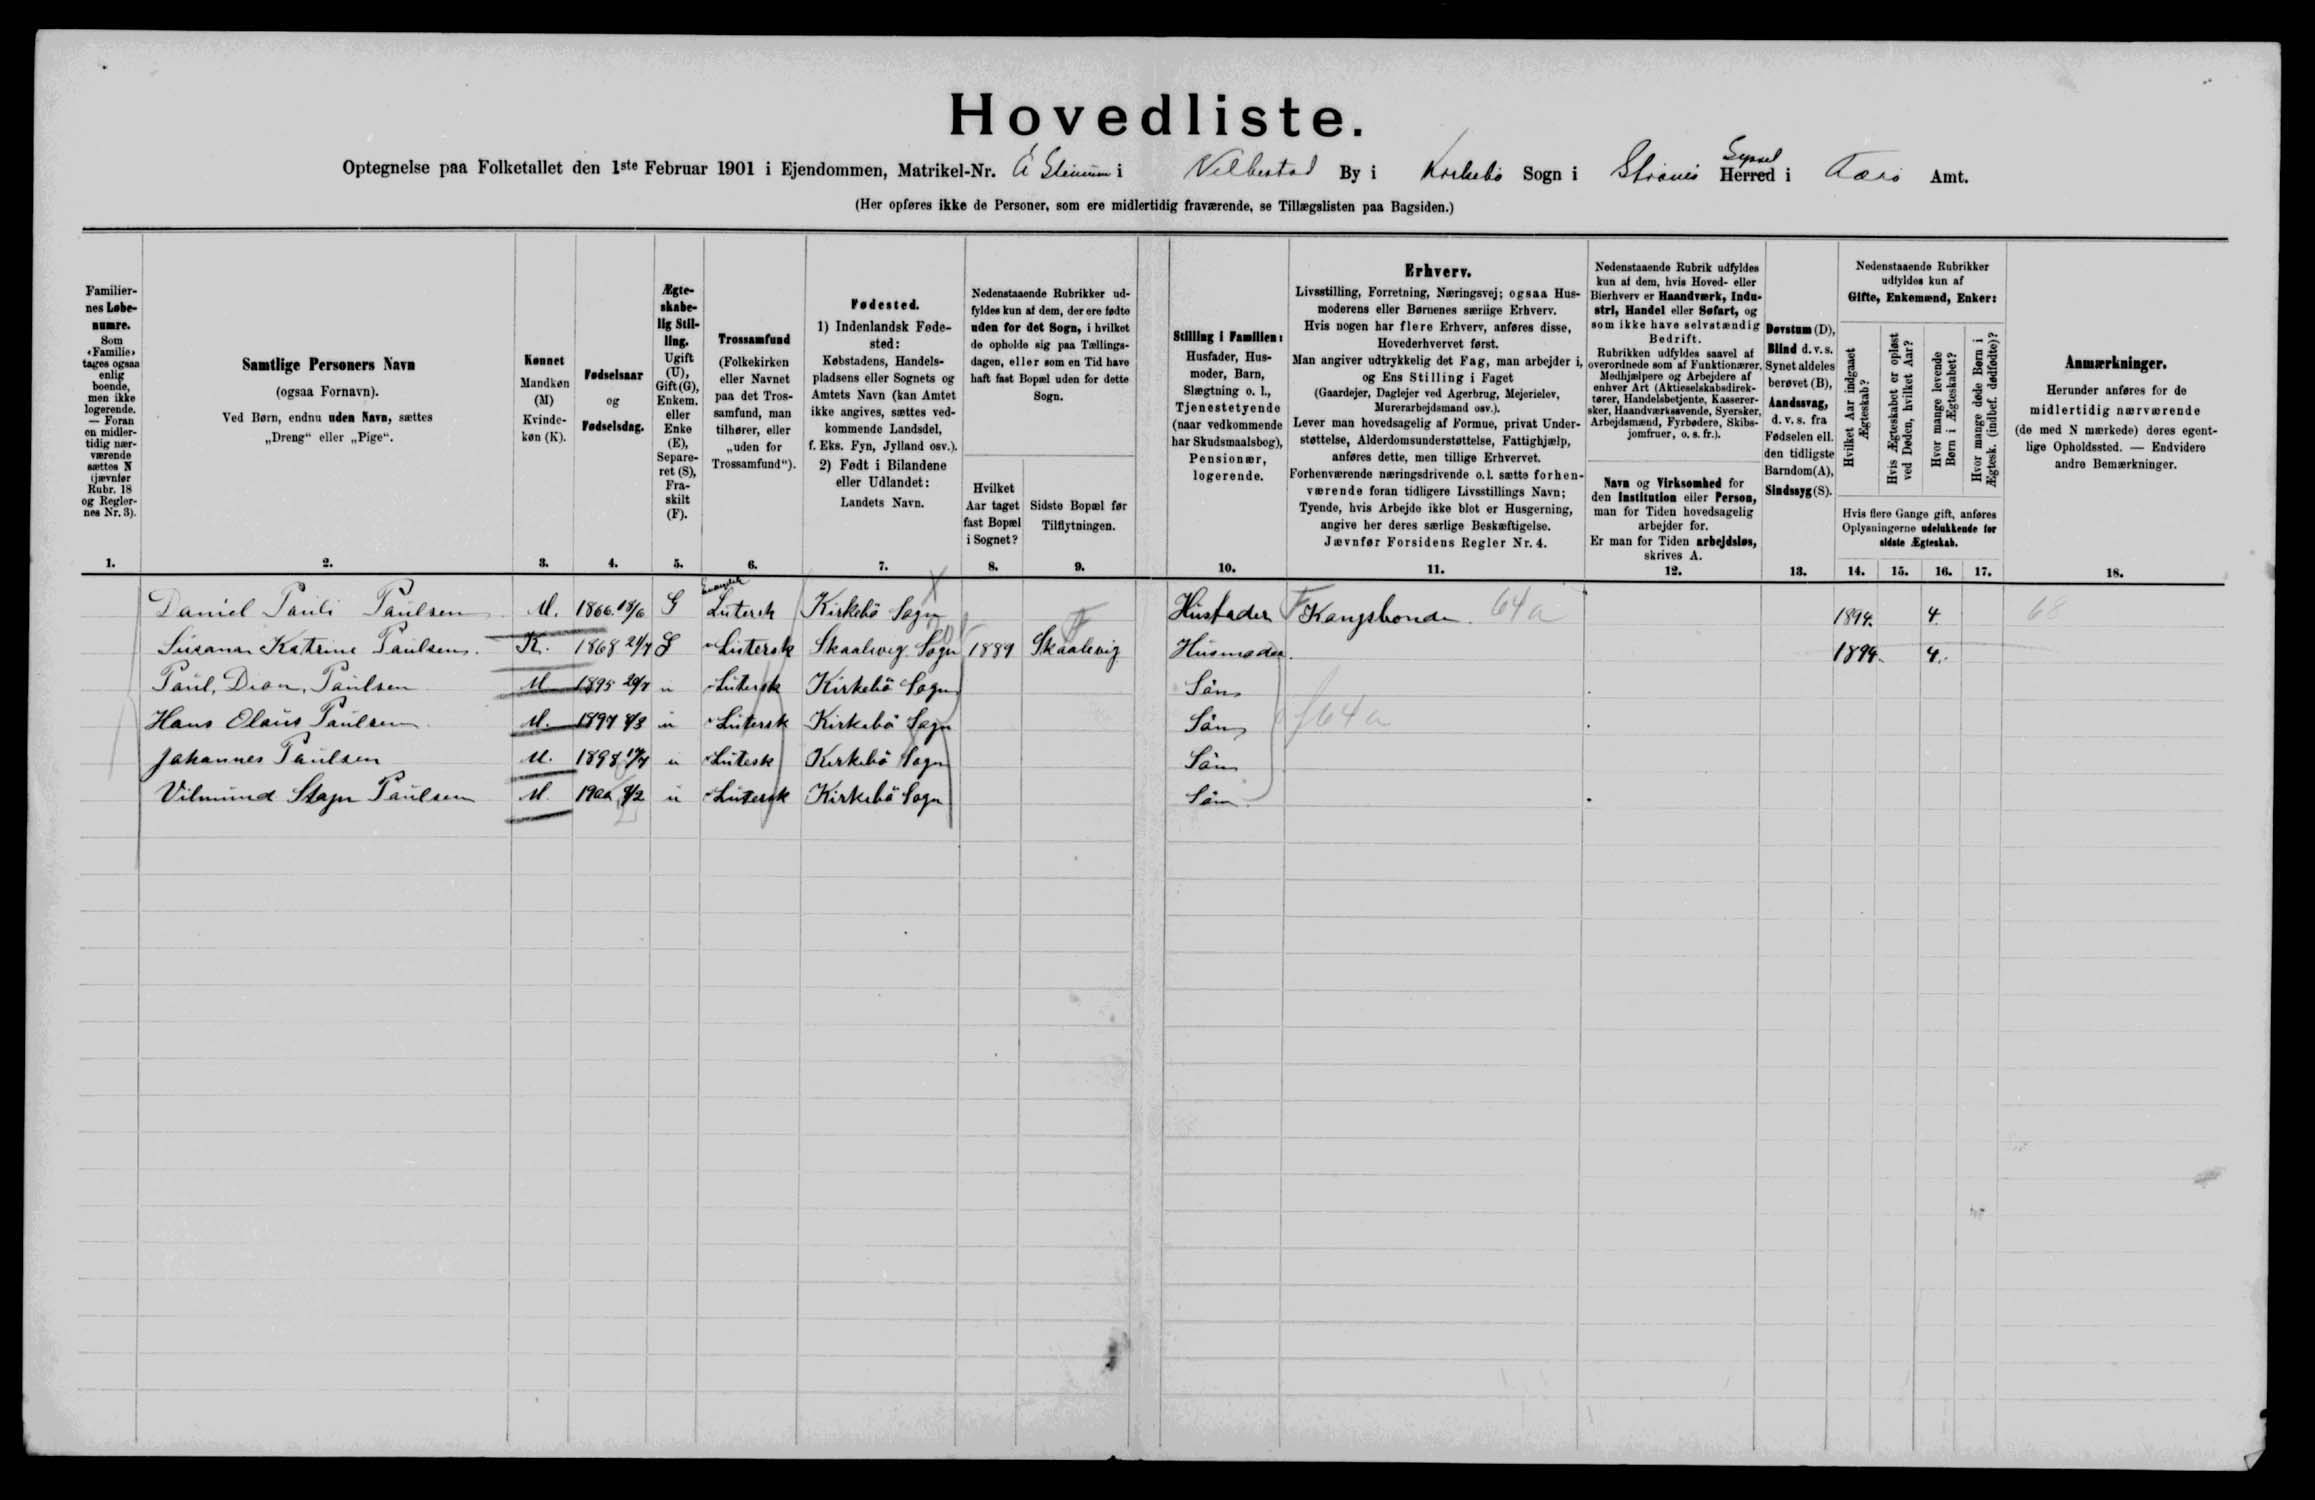 Hovedliste.
Optegnelse paa Folketallet den 1ste Februar 1901 i Ejendommen, Matrikel-Nr. i Velbestad By i Kirkebö Sogn i Strömö Herred Syssel i Færö Amt.
(Her opføres ikke de Personer, som ere midlertidig fraværende, se Tillægslisten paa Bagsiden.)
Familiernes Løbenumre.
Som «Familie» tages ogsaa enlig boende, men ikke logerende. — Foran en midlertidig nærværende sættes N (jævnfør Rubr. 18 og Reglernes Nr. 3).
1.
Samtlige Personers Navn
(ogsaa Fornavn).
Ved Børn, endnu uden Navn, sættes
„Dreng“ eller „Pige“.
2.
Kønnet
Mandkøn (M)
Kvindekøn (K).
3.
Fødselsaar
og
Fødselsdag.
4.
Ægteskabelig Stilling.
Ugift (U), Gift (G), Enkem. eller Enke (E), Separeret (S), Fraskilt (F).
5.
Trossamfund
(Folkekirken eller Navnet paa det Trossamfund, man tilhører, eller „uden for Trossamfund“).
6.
Fødested.
1) Indenlandsk Fødested:
Købstadens, Handelspladsens eller Sognets og Amtets Navn (kan Amtet ikke angives, sættes vedkommende Landsdel, f. Eks. Fyn, Jylland osv.).
2) Født i Bilandene eller Udlandet:
Landets Navn.
7.
Nedenstaaende Rubrikker udfyldes kun af dem, der ere fødte uden for det Sogn, i hvilket de opholde sig paa Tællingsdagen, eller som en Tid have haft fast Bopæl uden for dette Sogn.
Hvilket Aar taget fast Bopæl i Sognet?
8.
Sidste Bopæl før Tilflytningen.
9.
Stilling i Familien:
Husfader, Husmoder, Barn, Slægtning o. l., Tjenestetyende (naar vedkommende har Skudsmaalsbog), Pensionær, logerende.
10.
Erhverv.
Livsstilling, Forretning, Næringsvej; ogsaa Husmoderens eller Børnenes særlige Erhverv.
Hvis nogen har flere Erhverv, anføres disse, Hovederhvervet først.
Man angiver udtrykkelig det Fag, man arbejder i, og Ens Stilling i Faget
(Gaardejer, Daglejer ved Agerbrug, Mejerielev, Murerarbejdsmand osv.).
Lever man hovedsagelig af Formue, privat Understøttelse, Alderdomsunderstøttelse, Fattighjælp, anføres dette, men tillige Erhvervet.
Forhenværende næringsdrivende o. l. sætte forhenværende foran tidligere Livsstillings Navn; Tyende, hvis Arbejde ikke blot er Husgerning, angive her deres særlige Beskæftigelse.
Jævnfør Forsidens Regler Nr. 4.
11.
Nedenstaaende Rubrik udfyldes kun af dem, hvis Hoved- eller Bierhverv er Haandværk, Industri, Handel eller Søfart, og som ikke have selvstændig Bedrift.
Rubrikken udfyldes saavel af overordnede som af Funktionærer, Medhjælpere og Arbejdere af enhver Art (Aktieselskabsdirektører, Handelsbetjente, Kasserersker, Haandværkssvende, Syersker, Arbejdsmænd, Fyrbødere, Skibsjomfruer, o. s. fr.).
Navn og Virksomhed for den Institution eller Person, man for Tiden hovedsagelig arbejder for.
Er man for Tiden arbejdsløs, skrives A.
12.
Døvstum (D),
Blind d. v. s. Synet aldeles berøvet (B),
Aandssvag, d. v. s. fra Fødselen ell. den tidligste Barndom (A),
Sindssyg (S).
13.
Nedenstaaende Rubrikker udfyldes kun af
Gifte, Enkemænd, Enker:
Hvilket Aar indgaaet Ægteskab?
Hvis Ægteskabet er opløst ved Døden, hvilket Aar?
Hvor mange levende Børn i Ægteskabet?
Hvor mange døde Børn i Ægtesk. (indbef. dødfødte)?
Hvis flere Gange gift, anføres Oplysningerne udelukkende for sidste Ægteskab.
14. 15. 16. 17.
Anmærkninger.
Herunder anføres for de midlertidig nærværende (de med N mærkede) deres egentlige Opholdssted. — Endvidere andre Bemærkninger.
18.
Daniel Pauli Paulsen M. 1866 18/6 G Lutersk Kirkebö Sogn Husfader Kongsbonde 64a 1894. 4 68
Susanna Katrine Paulsen. K. 1868 G Lutersk Skaalevig Sogn 1889 Skaalevig Husmoder. 1894. 4.
Paul, Paulsen M 1895 u Lutersk Kirkebö Sogn Sön
Hans Olaus Paulsen M. 1897 u Lutersk Kirkebö Sogn Sön 64a
Johannes Paulsen M. 1898 u Lutesk Kirkebö Sogn Sön
Vilmund Paulsen M. u Lutersk Kirkebö Sogn Sön